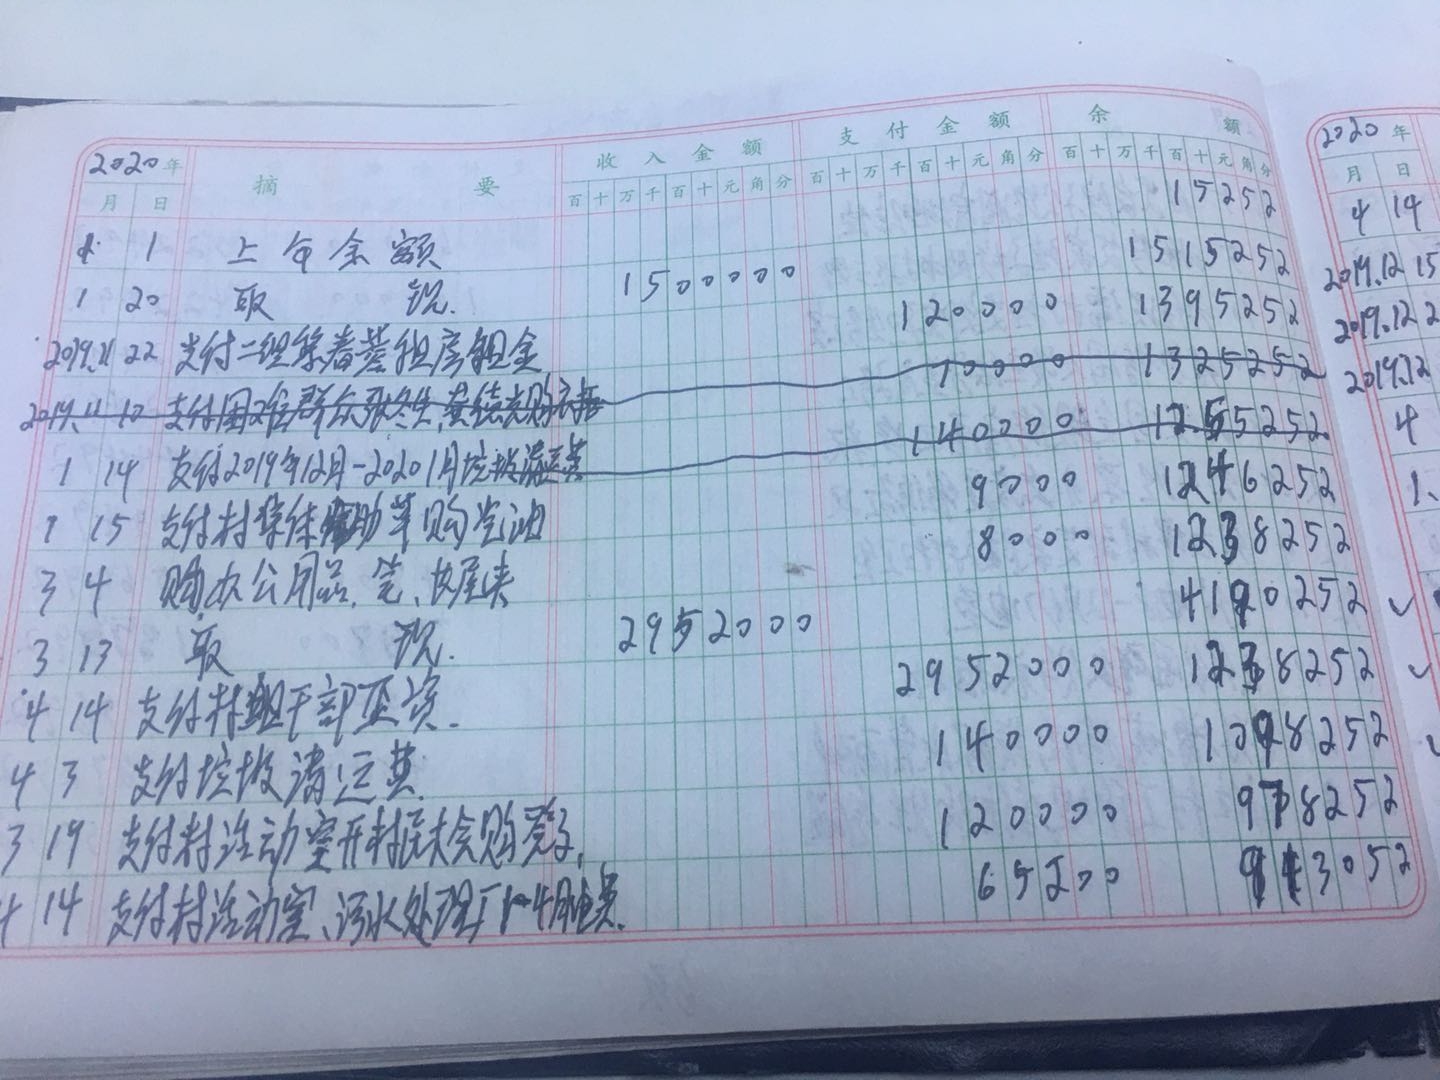 2020年 摘要 收入金额 支付金额 余额
月 日 百十万千百十元角分 百十万千百十元角分 百十万千百十元角分
1 上年余额 15252
1 20 取现. 1500000 1515252
2019.11 22 支付二组 租房租金 120000 1395252
2019.11. 10 支付困难群众 70000 1325252
1 14 支付2019年12月-2020 1月垃圾清运费 140000 1255252
1 15 支付村集体 购汽油 9000 1246252
3 4 购办公用品、笔、 夹 8000 1238252
3 13 取现. 2952000 4190252
4 14 支付村组干部工资. 2952000 1238252
4 3 支付垃圾清运费. 140000 1098252
3 19 支付村活动室开村民大会购凳子, 120000 978252
4 14 支付村活动室、污水处理厂1-4月电费. 65200 913052
2020年
月 日
4 14
2019.12 15
2019.12 2
2019.12
4
1.